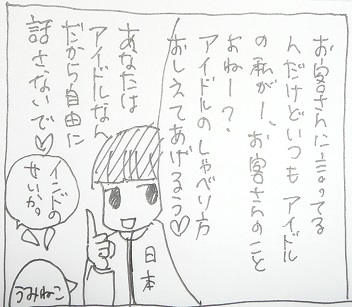 お客さんに言ってる
んだけどいつもアイドル
の私がー、お客さんのこと
おねー?、
アイドルのしゃべり方
おしえてあげるう♡
あなたは
アイドルなん
だから自由に
話さないで♡
インドの
せいか。
日本
うみねこ